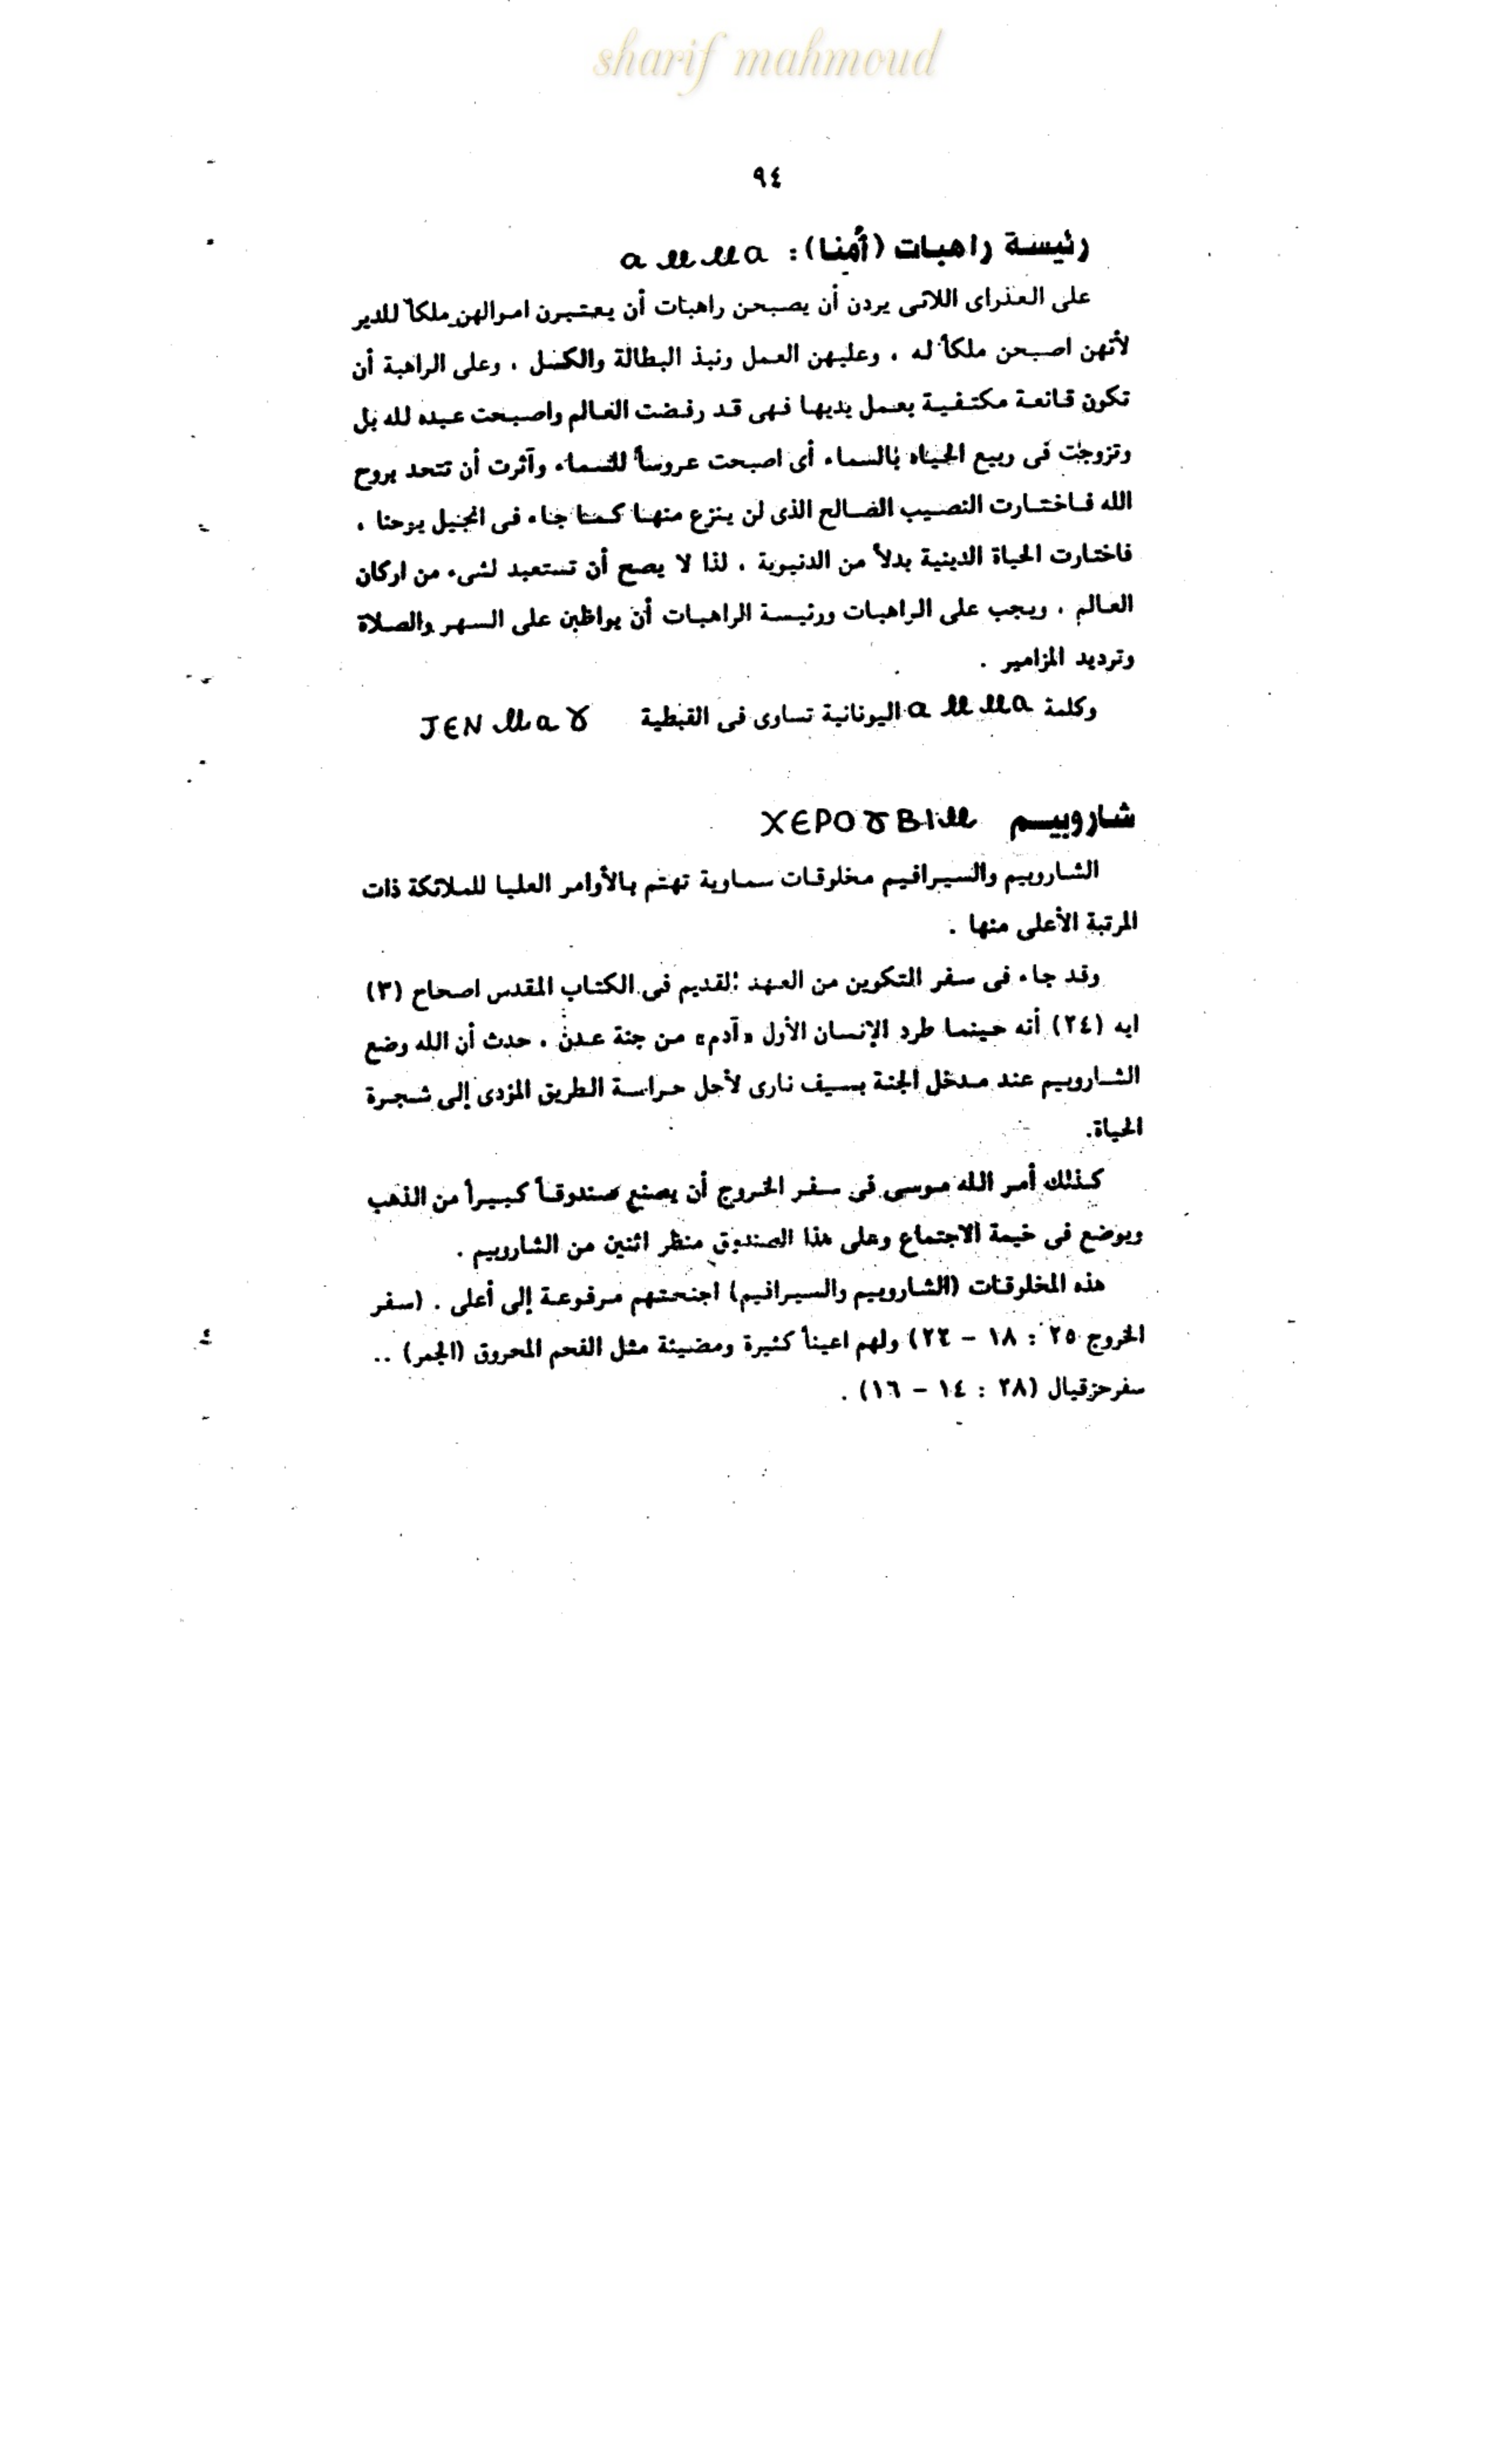 sharif mahmoud
٩٤
رئيسة راهبات (أمنا) : ⲁⲙⲙⲁ
على العذراى اللاتى يردن أن يصبحن راهبات أن يعتبرن اموالهن ملكاً للدير
لأنهن اصبحن ملكاً له ، وعليهن العمل ونبذ البطالة والكسل ، وعلى الراهبة أن
تكون قانعة مكتفية بعمل يديها فهى قد رفضت العالم واصبحت عبده لله بل
وتزوجت فى ربيع الحياه بالسماء أى اصبحت عروساً للسماء وآثرت أن تتحد بروح
الله فاختارت النصيب الصالح الذى لن ينزع منها كما جاء فى انجيل يوحنا ،
فاختارت الحياة الدينية بدلاً من الدنيوية ، لذا لا يصح أن تستعبد لشىء من اركان
العالم ، ويجب على الراهبات ورئيسة الراهبات أن يواظبن على السهر والصلاة
وترديد المزامير .
وكلمة ⲁⲙⲙⲁ اليونانية تساوى فى القبطية ϯⲉⲛⲙⲁⲩ
شاروبيم ⲭⲉⲣⲟⲩⲃⲓⲙ
الشاروبيم والسيرافيم مخلوقات سماوية تهتم بالأوامر العليا للملائكة ذات
المرتبة الأعلى منها .
وقد جاء فى سفر التكوين من العهد القديم فى الكتاب المقدس اصحاح (٣)
ايه (٢٤) أنه حينما طرد الإنسان الأول «آدم» من جنة عدن ، حدث أن الله وضع
الشاروبيم عند مدخل الجنة بسيف نارى لأجل حراسة الطريق المؤدى إلى شجرة
الحياة.
كذلك أمر الله موسى فى سفر الخروج أن يصنع صندوقاً كبيراً من الذهب
ويوضع فى خيمة الاجتماع وعلى هذا الصندوق منظر اثنين من الشاروبيم .
هذه المخلوقات (الشاروبيم والسيرافيم) اجنحتهم مرفوعة إلى أعلى . (سفر
الخروج ٢٥ : ١٨ - ٢٢) ولهم اعيناً كثيرة ومضيئة مثل الفحم المحروق (الجمر) ..
سفرحزقيال (٢٨ : ١٤ - ١٦) .